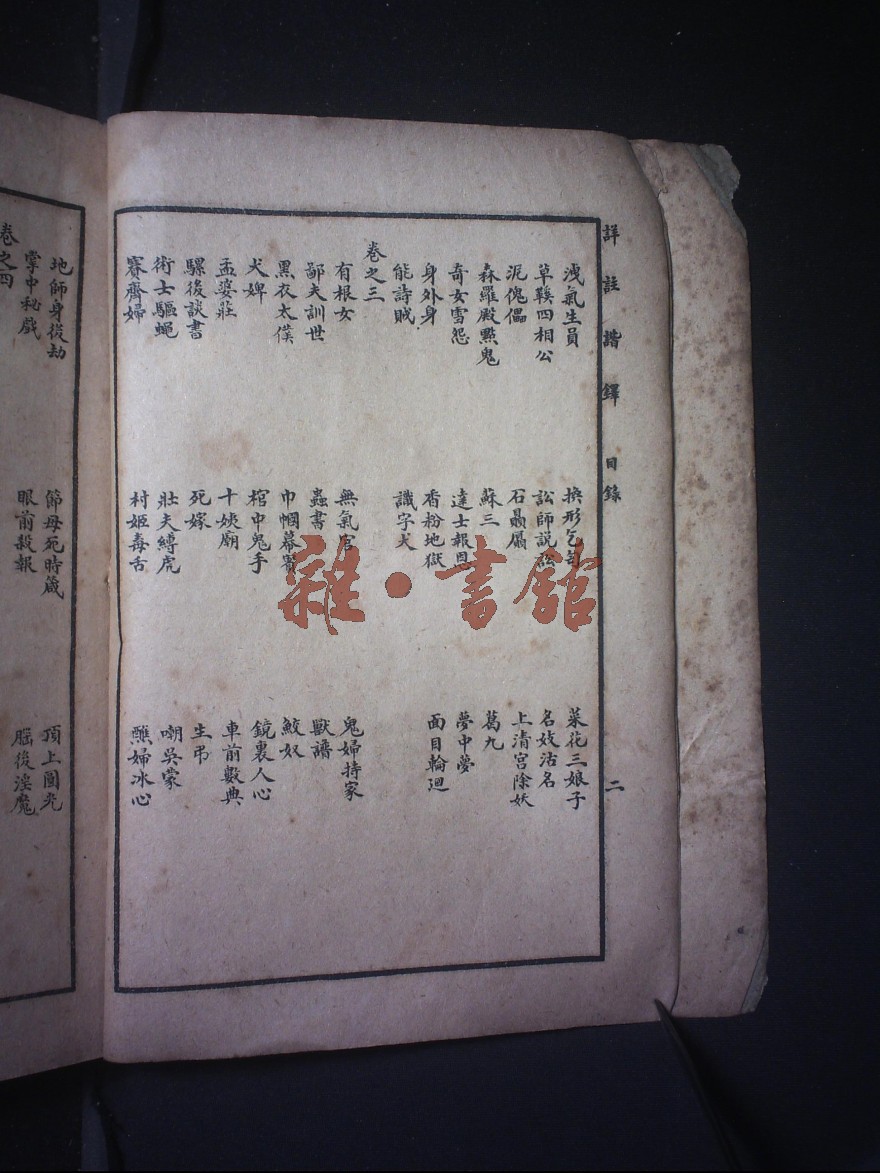 詳註諧鐸 目錄 二
洩氣生員 換形乞丐 菜花三娘子
草鞵四相公 訟師説訟 名妓沽名
泥傀儡 石贔屭 上清宮除妖
森羅殿點鬼 蘇三 葛九
奇女雪怨 達士報恩 夢中夢
身外身 香粉地獄 面目輪迴
能詩賊 識字犬
卷之三
有根女 無氣官 鬼婦持家
鄙夫訓世 蟲書 獸譜
黑衣太僕 巾幗幕賓 鮫奴
犬婢 棺中鬼手 鏡裏人心
孟婆莊 十姨廟 車前數典
騾後談書 死嫁 生吊
術士驅蠅 壯夫縛虎 嘲吳蒙
賽齊婦 村姬毒舌 醮婦冰心
地師身後劫 節母死時箴 頂上圓光
掌中秘戲 眼前殺報 腦後淫魔
卷之四
雜·書館